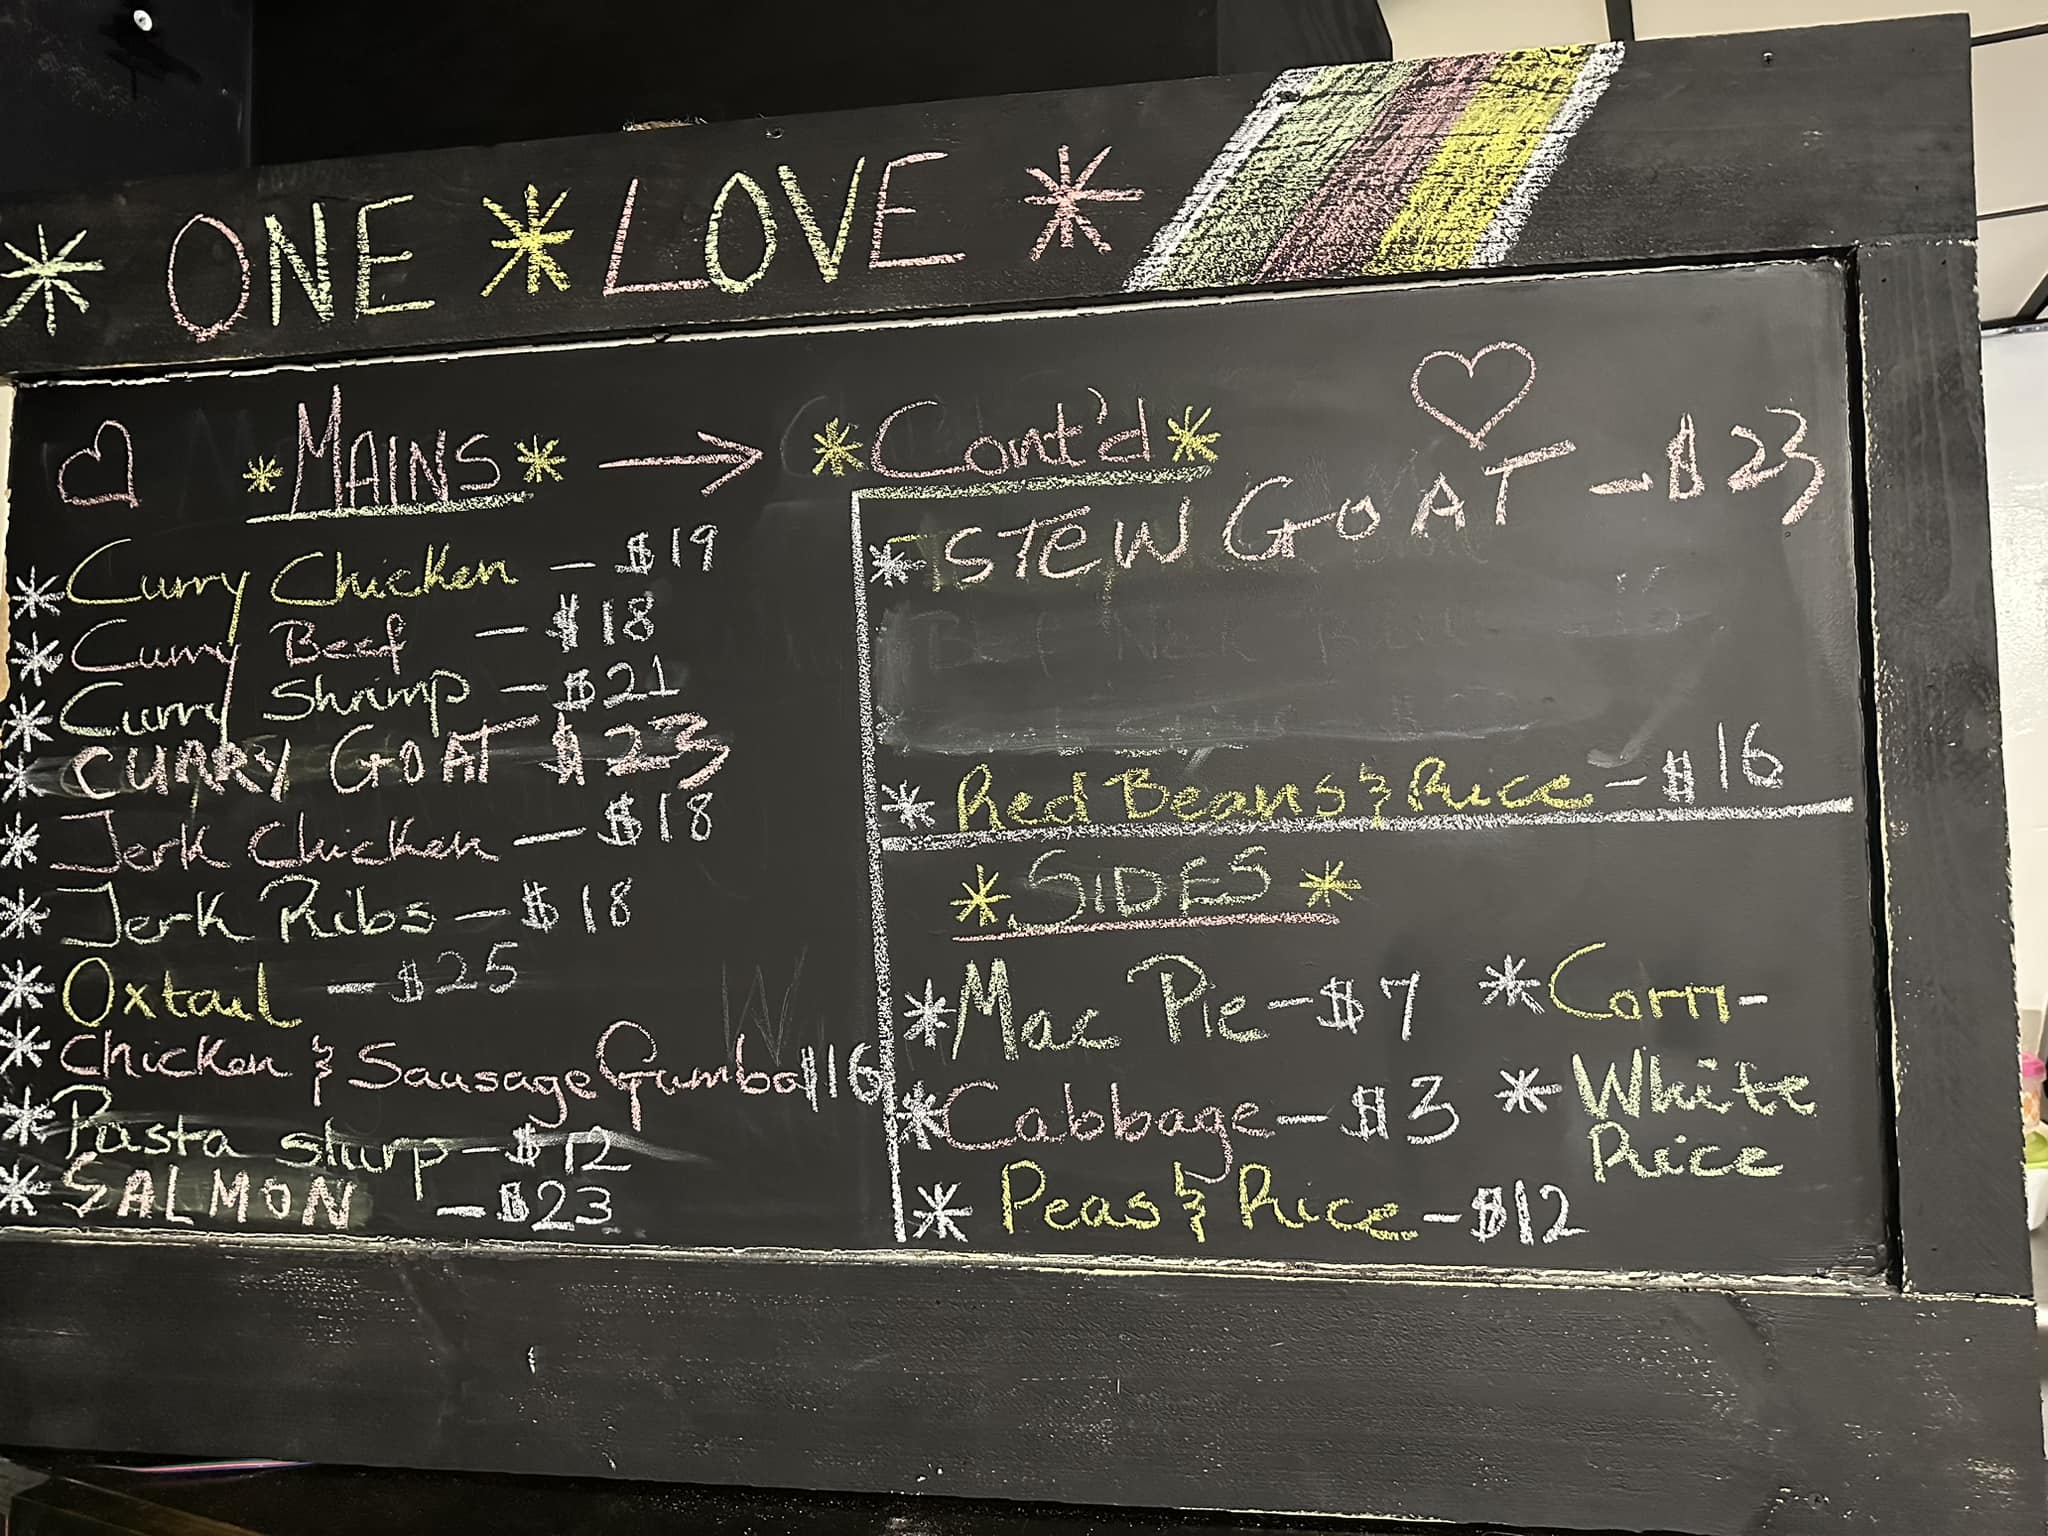 * ONE * LOVE *
* MAINS *
* Curry Chicken - $19
* Curry Beef - $18
* Curry Shrimp - $21
* CURRY GOAT $23
* Jerk Chicken - $18
* Jerk Ribs - $18
* Oxtail - $25
* Chicken & Sausage Gumbo $16
* Pasta shrp - $12
* SALMON - $23
* Cont'd *
* STEW GOAT - $23
* Red Beans & Rice - $16
* SIDES *
* Mac Pie - $7
* Cabbage - $3
* Peas & Rice - $12
* Corn -
* White
Rice